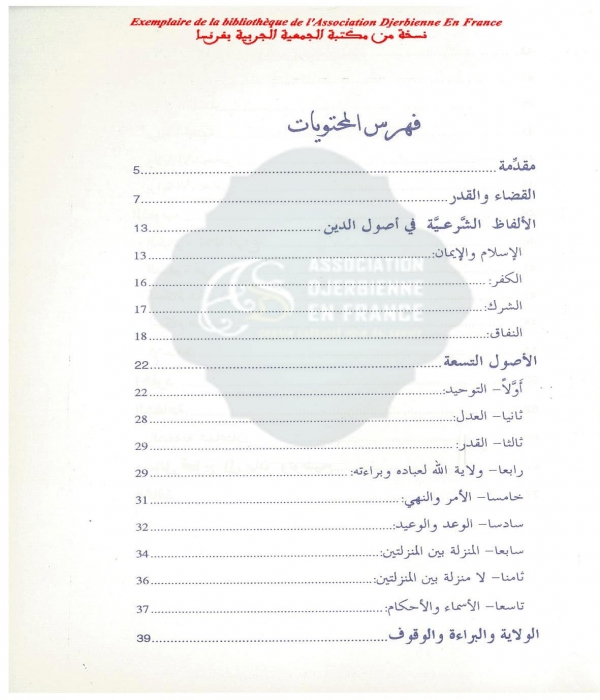 Exemplaire de la bibliothèque de l'Association Djerbienne En France
نسخة من مكتبة الجمعية الجربية بفرنسا
فهرس المحتويات
مقدِّمة 5
القضاء والقدر 7
الألفاظ الشَّرعيَّة في أصول الدين 13
الإسلام والإيمان: 13
الكفر: 16
الشرك: 17
النفاق: 18
الأصول التسعة 22
أوَّلاً- التوحيد: 22
ثانيا- العدل: 28
ثالثا- القدر: 29
رابعا- ولاية الله لعباده وبراءته: 29
خامسا- الأمر والنهي: 31
سادسا- الوعد والوعيد: 32
سابعا- المنزلة بين المنزلتين: 34
ثامنا- لا منزلة بين المنزلتين: 36
تاسعا- الأسماء والأحكام: 37
الولاية والبراءة والوقوف 39
ASSOCIATION
DJERBIENNE
EN FRANCE